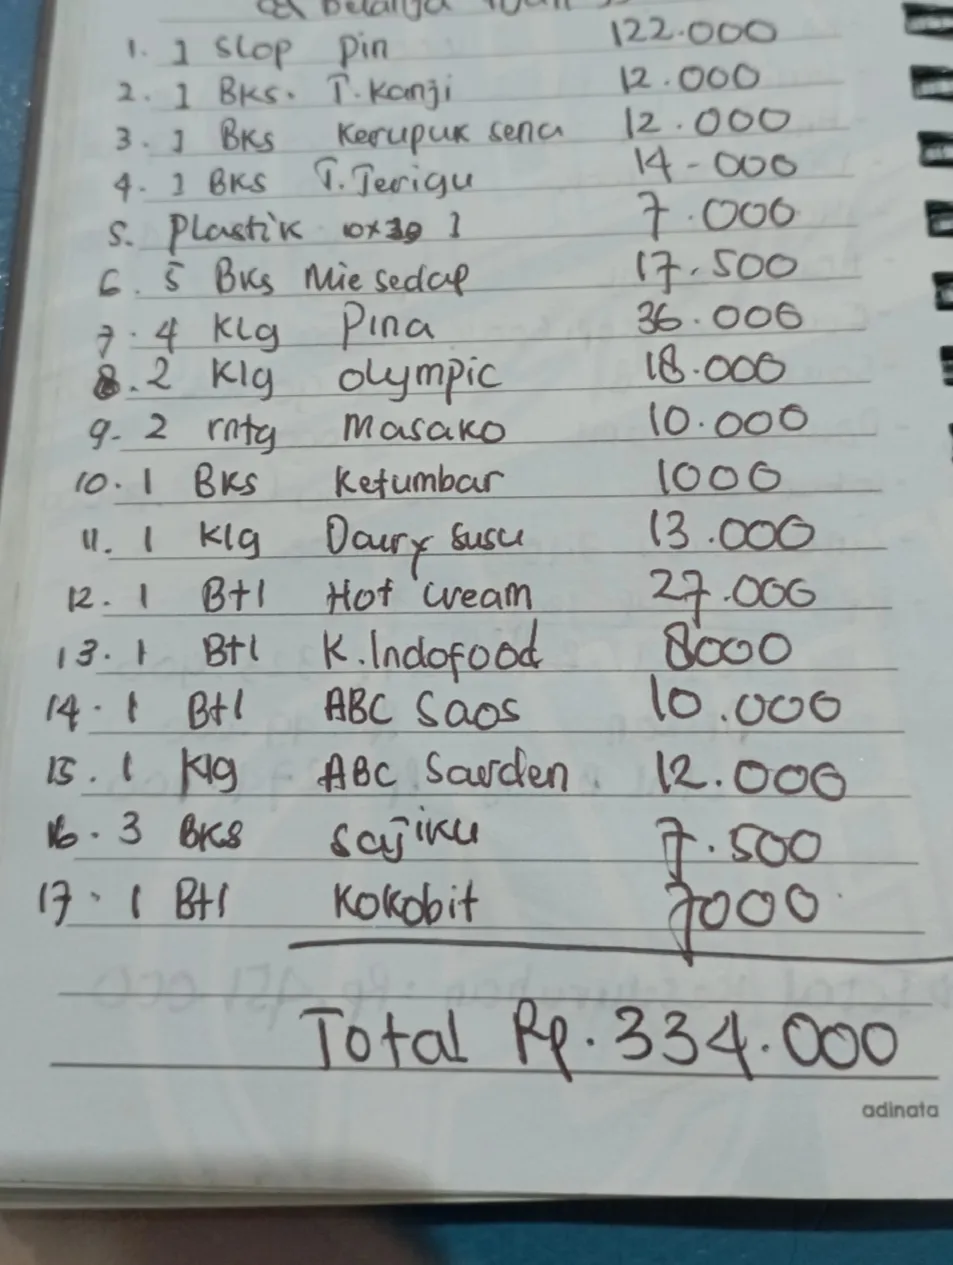 Belanja
1. 1 Slop Pin 122.000
2. 1 BKS. T. Kanji 12.000
3. 1 BKS Kerupuk sena 12.000
4. 1 BKS T. Terigu 14-000
5. Plastik 10x30 1 7.000
6. 5 BKS Mie sedap 17.500
7. 4 Klg Pina 36.000
8. 2 Klg Olympic 18.000
9. 2 rntg Masako 10.000
10. 1 BKS Ketumbar 1000
11. 1 Klg Dairy Susu 13.000
12. 1 Btl Hot cream 27.000
13. 1 Btl K. Indofood 8000
14. 1 Btl ABC Saos 10.000
15. 1 Klg ABC Sarden 12.000
16. 3 BKS Sajiku 7.500
17. 1 Btl Kokobit 7000
Total Rp. 334.000
adinata